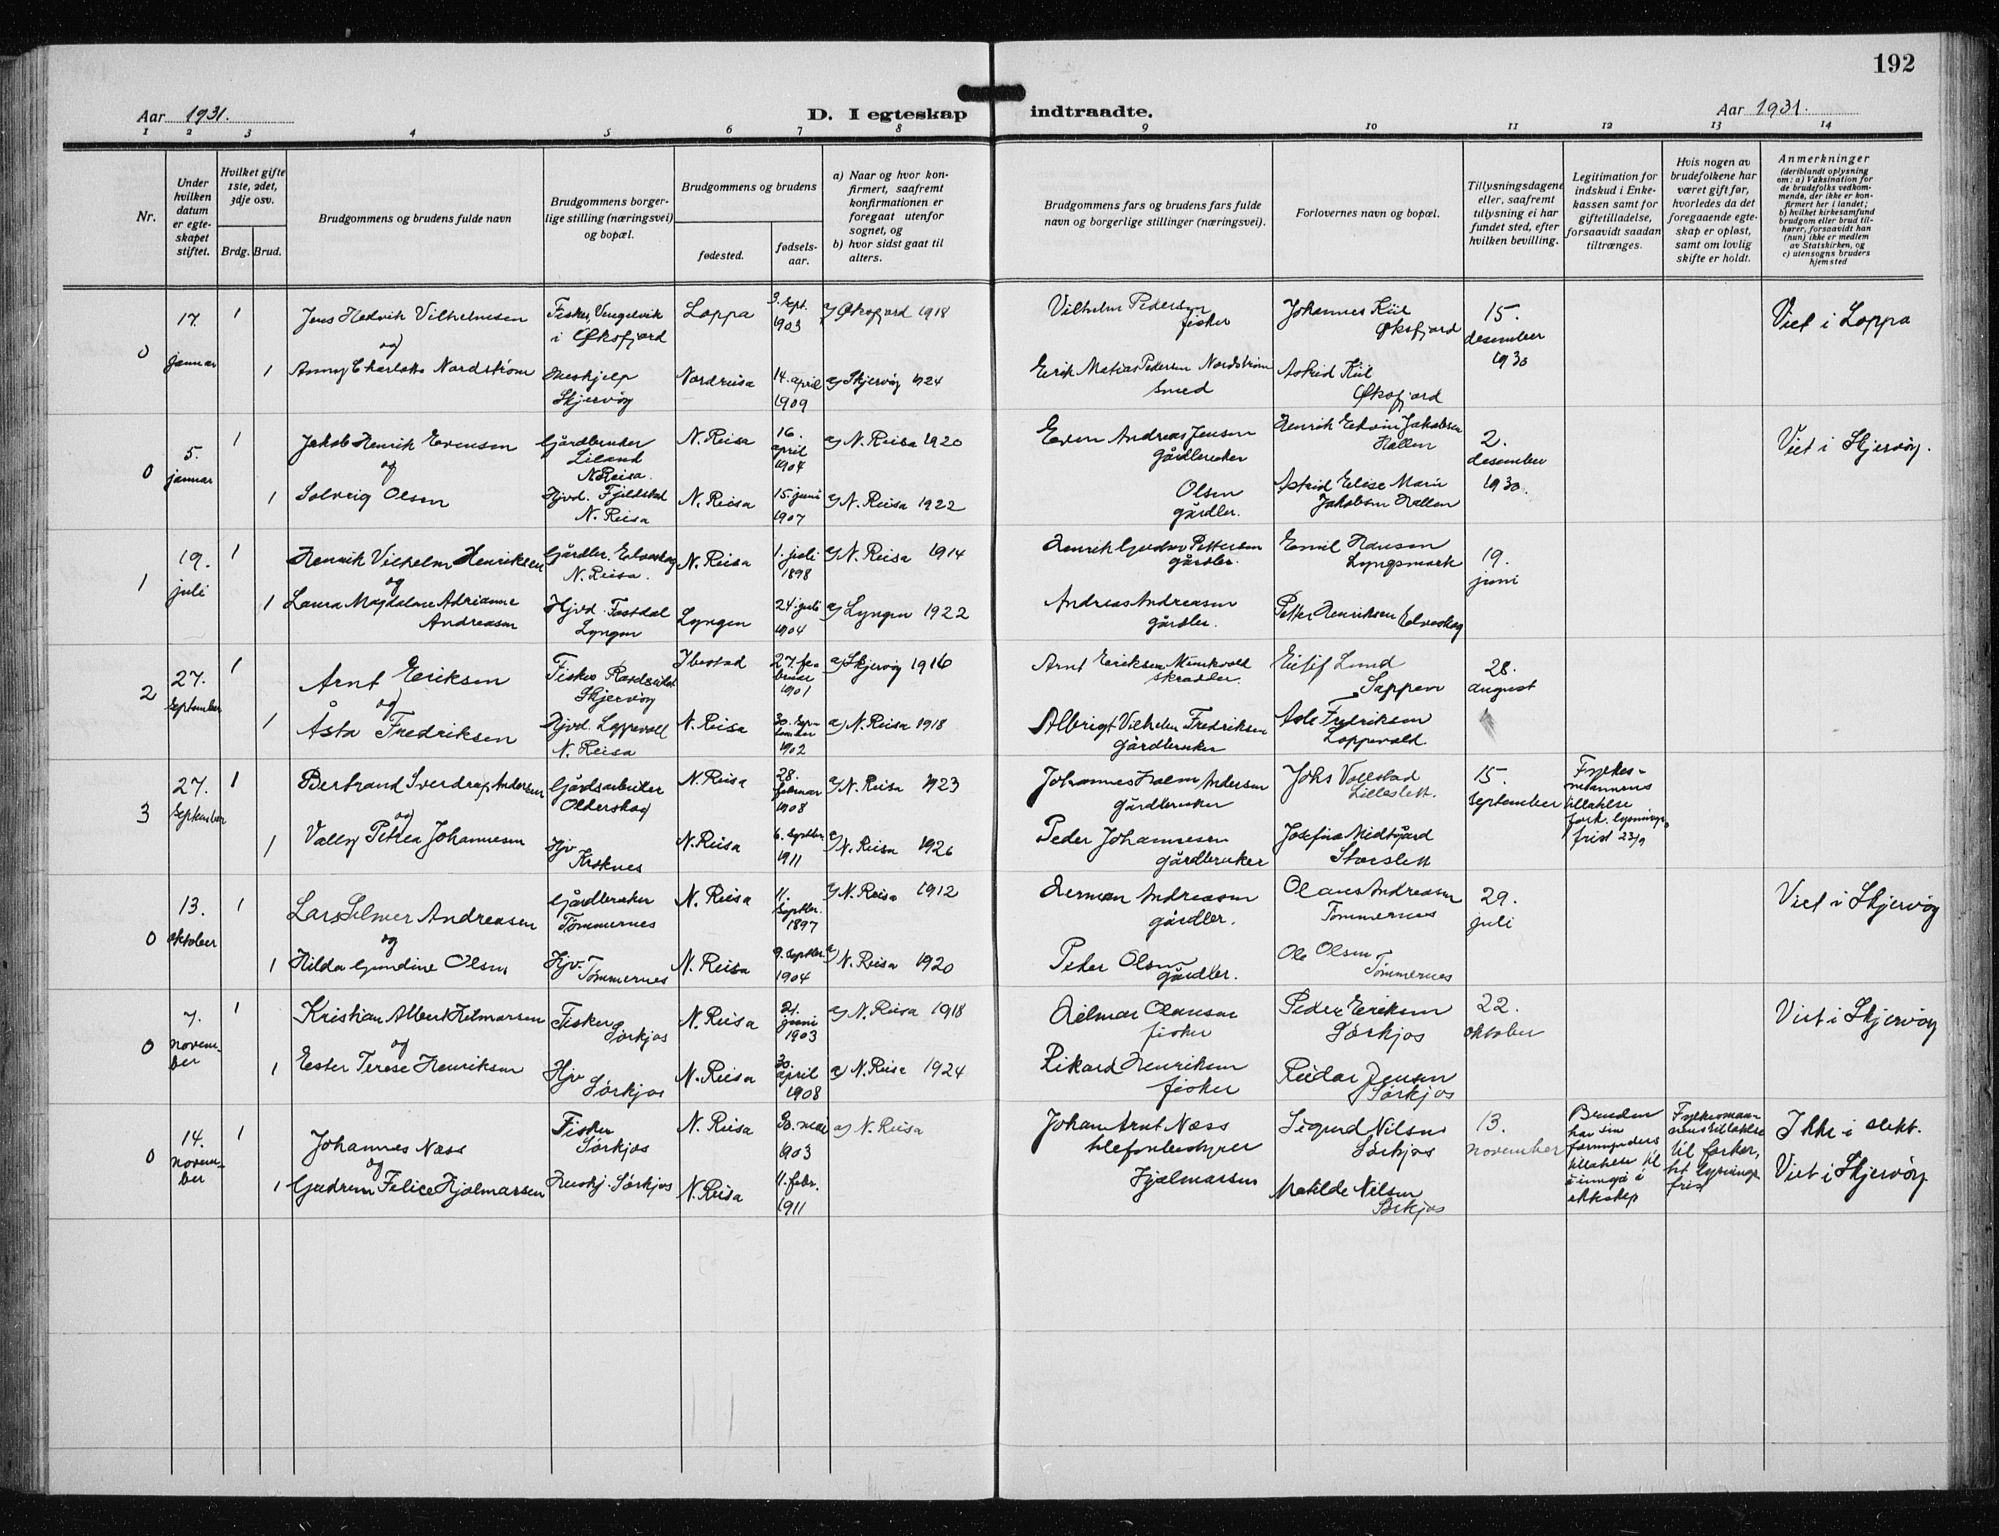 192
Aar 1931.
D. I egteskap indtraadte.
Aar 1931.
1 2 3 4 5 6 7 8 9 10 11 12 13 14
Nr.
Under hvilken datum er egte-skapet stiftet.
Hvilket gifte 1ste, 2det, 3dje osv.
Brdg. Brud.
Brudgommens og brudens fulde navn
Brudgommens borger-lige stilling (næringsvei) og bopæl.
Brudgommens og brudens
fødested.
fødsels-aar.
a) Naar og hvor kon-firmert, saafremt konfirmationen er foregaat utenfor sognet, og
b) hvor sidst gaat til alters.
Brudgommens fars og brudens fars fulde navn og borgerlige stillinger (næringsvei).
Forlovernes navn og bopæl.
Tillysningsdagene eller, saafremt tillysning ei har fundet sted, efter hvilken bevilling.
Legitimation for indskud i Enke-kassen samt for giftetilladelse, forsaavidt saadan tiltrænges.
Hvis nogen av brudefolkene har været gift før, hvorledes da det foregaaende egte-skap er opløst, samt om lovlig skifte er holdt.
Anmerkninger
(deriblandt oplysning om: a) Vaksination for de brudefolks vedkom-mende, der ikke er kon-firmert her i landet; b) hvilket kirkesamfund brudgom eller brud til-hører, forsaavidt han (hun) ikke er medlem av Statskirken, og c) utensogns bruders hjemsted
0 17. januar 1 Jens Hedvik Vilhelmsen Fisker, Vengelvik i Øksfjord Loppa 3. sept. 1903 a) Øksfjord 1918 Vilhelm Pedersen fisker Johannes Kiil Øksfjord 15. desember 1930 Viet i Loppa
og
1 Anny Charlotte Nordstrøm Hushjelp Skjervøy Nordreisa 14. april 1909 a) Skjervøy 1924 Erik Matias Pedersen Nordstrøm smed Astrid Kiil Øksfjord
0 5. januar 1 Jakob Henrik Evensen Gårdbruker Liland N. Reisa. N. Reisa 16. april 1904 a) N. Reisa 1920 Even Andreas Jensen gårdbruker Henrik Edvin Jakobsen Hallen 2. desember 1930. Viet i Skjervøy.
og
1 Solveig Olsen Hjvd. Fjellstad N. Reisa N. Reisa 15. juni 1907 a) N. Reisa 1922 Olsen gårdbr. Astrid Elise Marie Jakobsen Hallen
1 19. juli 1 Henrik Vilhelm Henriksen Gårdbr. Elveskog N. Reisa. N. Reisa 1. juli 1898 a) N. Reisa 1914 Henrik Gustav Pettersen gårdbr. Emil Hansen Lyngsmark 19. juni
og
1 Laura Magdalene Adrianne Andreasen Hjvd. Lyngen Lyngen 24. juli 1904 a) Lyngen 1922 Andreas Andreasen gårdbr. Petter Henriksen Elveskog
2 27. september 1 Arnt Eriksen Fisker Skjervøy Ibestad 27. februar 1901 a) Skjervøy 1916 Arnt Eriksen Munkvold skredder. Eilif Lund Sappen 28. august
og
1 Åsta Fredriksen Hjvd. Loppevoll N. Reisa N. Reisa 30. september 1902 a) N. Reisa 1918 Albrigt Vilhelm Fredriksen gårdbruker Fredriksen Loppevold
3 27. september 1 Bertrand Sverdrup Andersen Gårdsarbeider Olderskog N. Reisa 28. februar 1908 a) N. Reisa 1923 Johannes Holm Andersen gårdbruker Johs Vollstad Lilleslett. 15. september Fylkesmannens tillatelse fork. lysningsfrist 23/9
og
1 Vally Petrea Johannesen Hjv Kroknes N. Reisa 6. septbr. 1911 a) N. Reisa 1926 Peder Johannesen gårdbruker Josefine Midtgård Storslett
0 13. oktober 1 Lars Selmer Andreasen Gårdbruker Tømmernes N. Reisa 11. septbr. 1897 a) N. Reisa 1912 Herman Andreasen gårdbr. Olaus Andreasen Tømmernes 29. juli Viet i Skjervøy
og
1 Hilda Gundine Olsen Hjv. Tømmernes N. Reisa 9. septbr. 1904 a) N. Reisa 1920 Peter Olsen gårdbr. Ole Olsen Tømmernes
0 7. november 1 Kristian Albert Hilmarsen Fisker Sørkjos N. Reisa 21. juni 1903 a) N. Reisa 1918 Hilmar Olaussen fisker Peder Eriksen Sørkjos 22. oktober Viet i Skjervøy
og
1 Ester Terese Henriksen Hjv Sørkjos N. Reisa 30. april 1908 a) N. Reisa 1924 Rikard Henriksen fisker Reidar Jensen Sørkjos
0 14. november 1 Johannes Næss Fisker Sørkjos N. Reisa 30. mai 1903 a) N. Reisa Johan Arnt Næss telefonbestyrer Sigurd Nilsen Sørkjos 13. november Bruden har sin formynders tillatelse til å inngå i ekteskap Fylkesmannens tillatelse til forkortet lysningsfrist Ikke i slekt. Viet i Skjervøy
og
1 Gudrun Felice Hjalmarsen Hushj. Sørkjos N. Reisa 11. febr. 1911 Hjalmarsen Matilde Nilsen Sørkjos